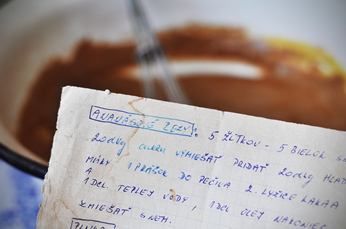 ANANÁSOVÉ REZY: 5 ŽĹTKOV - 5 BIELOK
20 dkg cukru VYMIEŠAŤ PRIDAŤ 20 dkg HLAD
MÚKY 1 PRÁŠOK DO PEČIVA 2. LYŽICE KAKAA
A
1 DCL. TEPLEJ VODY, 1 DCL OLEJ NAKONIEC
ZMIEŠAŤ SNEH.